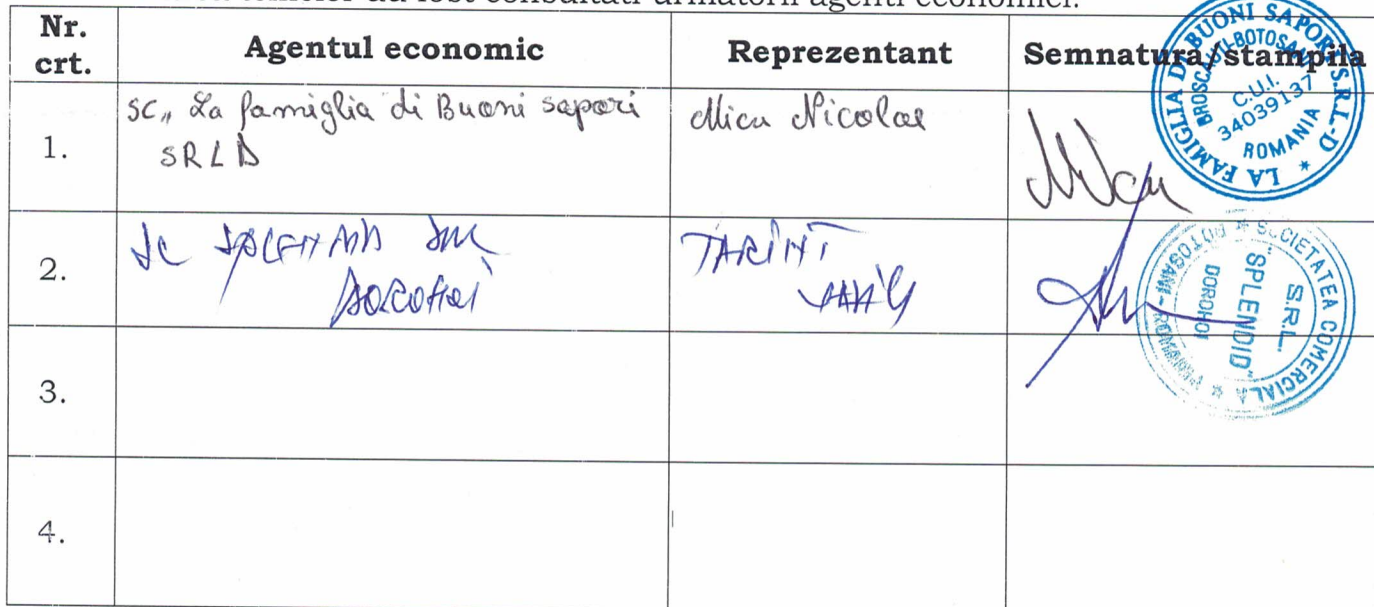 temelor au fost consultati urmatorii agenti economici:
Nr. crt.
Agentul economic
Reprezentant
Semnatura/stampila
1.
SC „ La famiglia di Buoni sapori
SRL D
Micu Nicolae
Micu
LA FAMIGLIA DI BUONI SAPORI S.R.L-D *
BROSCAUTI-BOTOSANI
C.U.I.
34039137
ROMANIA
2.
SC SPLENDID SRL
DOROHOI
TARINI
* SOCIETATEA COMERCIALA * BOTOSANI - ROMANIA
S.R.L.
"SPLENDID"
DOROHOI
3.
4.